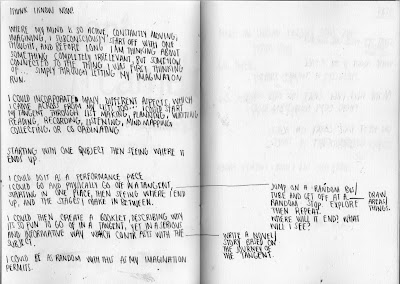 I THINK I KNOW NOW!
WHERE MY MIND IS SO ACTIVE, CONSTANTLY MOVING,
IMAGINING, I SUBCONSCIOUSLY START OFF WITH ONE
THOUGHT, AND BEFORE LONG I AM THINKING ABOUT
SOMETHING COMPLETELY IRRELEVANT, BUT SOMEHOW
CONNECTED TO THE THING I WAS FIRST THINKING
OF... SIMPLY THROUGH LETTING MY IMAGINATION
RUN.
I COULD INCORPORATE MANY DIFFERENT ASPECTS, WHICH
I CAME ACROSS FROM MY LIST. I COULD START
MY TANGENT THROUGH LIST MAKING, PLANNING, WRITING
RECORDING, LISTENING, MIND MAPPING
COLLECTING, OR CO ORDINATING
STARTING WITH ONE SUBJECT THEN SEEING WHERE IT
ENDS UP.
I COULD DO IT AS A PERFORMANCE PIECE
I COULD GO AND PHYSICALLY GO ON A TANGENT,
STARTING IN ONE PLACE, THEN SEEING WHERE I END
UP, AND THE STAGES I MAKE IN BETWEEN.
I COULD THEN CREATE A BOOKLET, DESCRIBING WHY
ITS SO FUN TO GO OF IN A TANGENT, YET IN A SERIOUS
AND INFORMATIVE WAY WHICH CONTRASTS WITH THE
SUBJECT.
I COULD BE AS RANDOM WITH THIS AS MY IMAGINATION
PERMITS.
JUMP ON A RANDOM BUS/
TUBE AND GET OFF AT A
RANDOM STOP. EXPLORE
THEN REPEAT.
WHERE WILL IT END? WHAT
WILL I SEE?
DRAW
AREAS/
THINGS.
WRITE A NOVEL/
STORY BASED ON
THE JOURNEY OF
THE TANGENT.